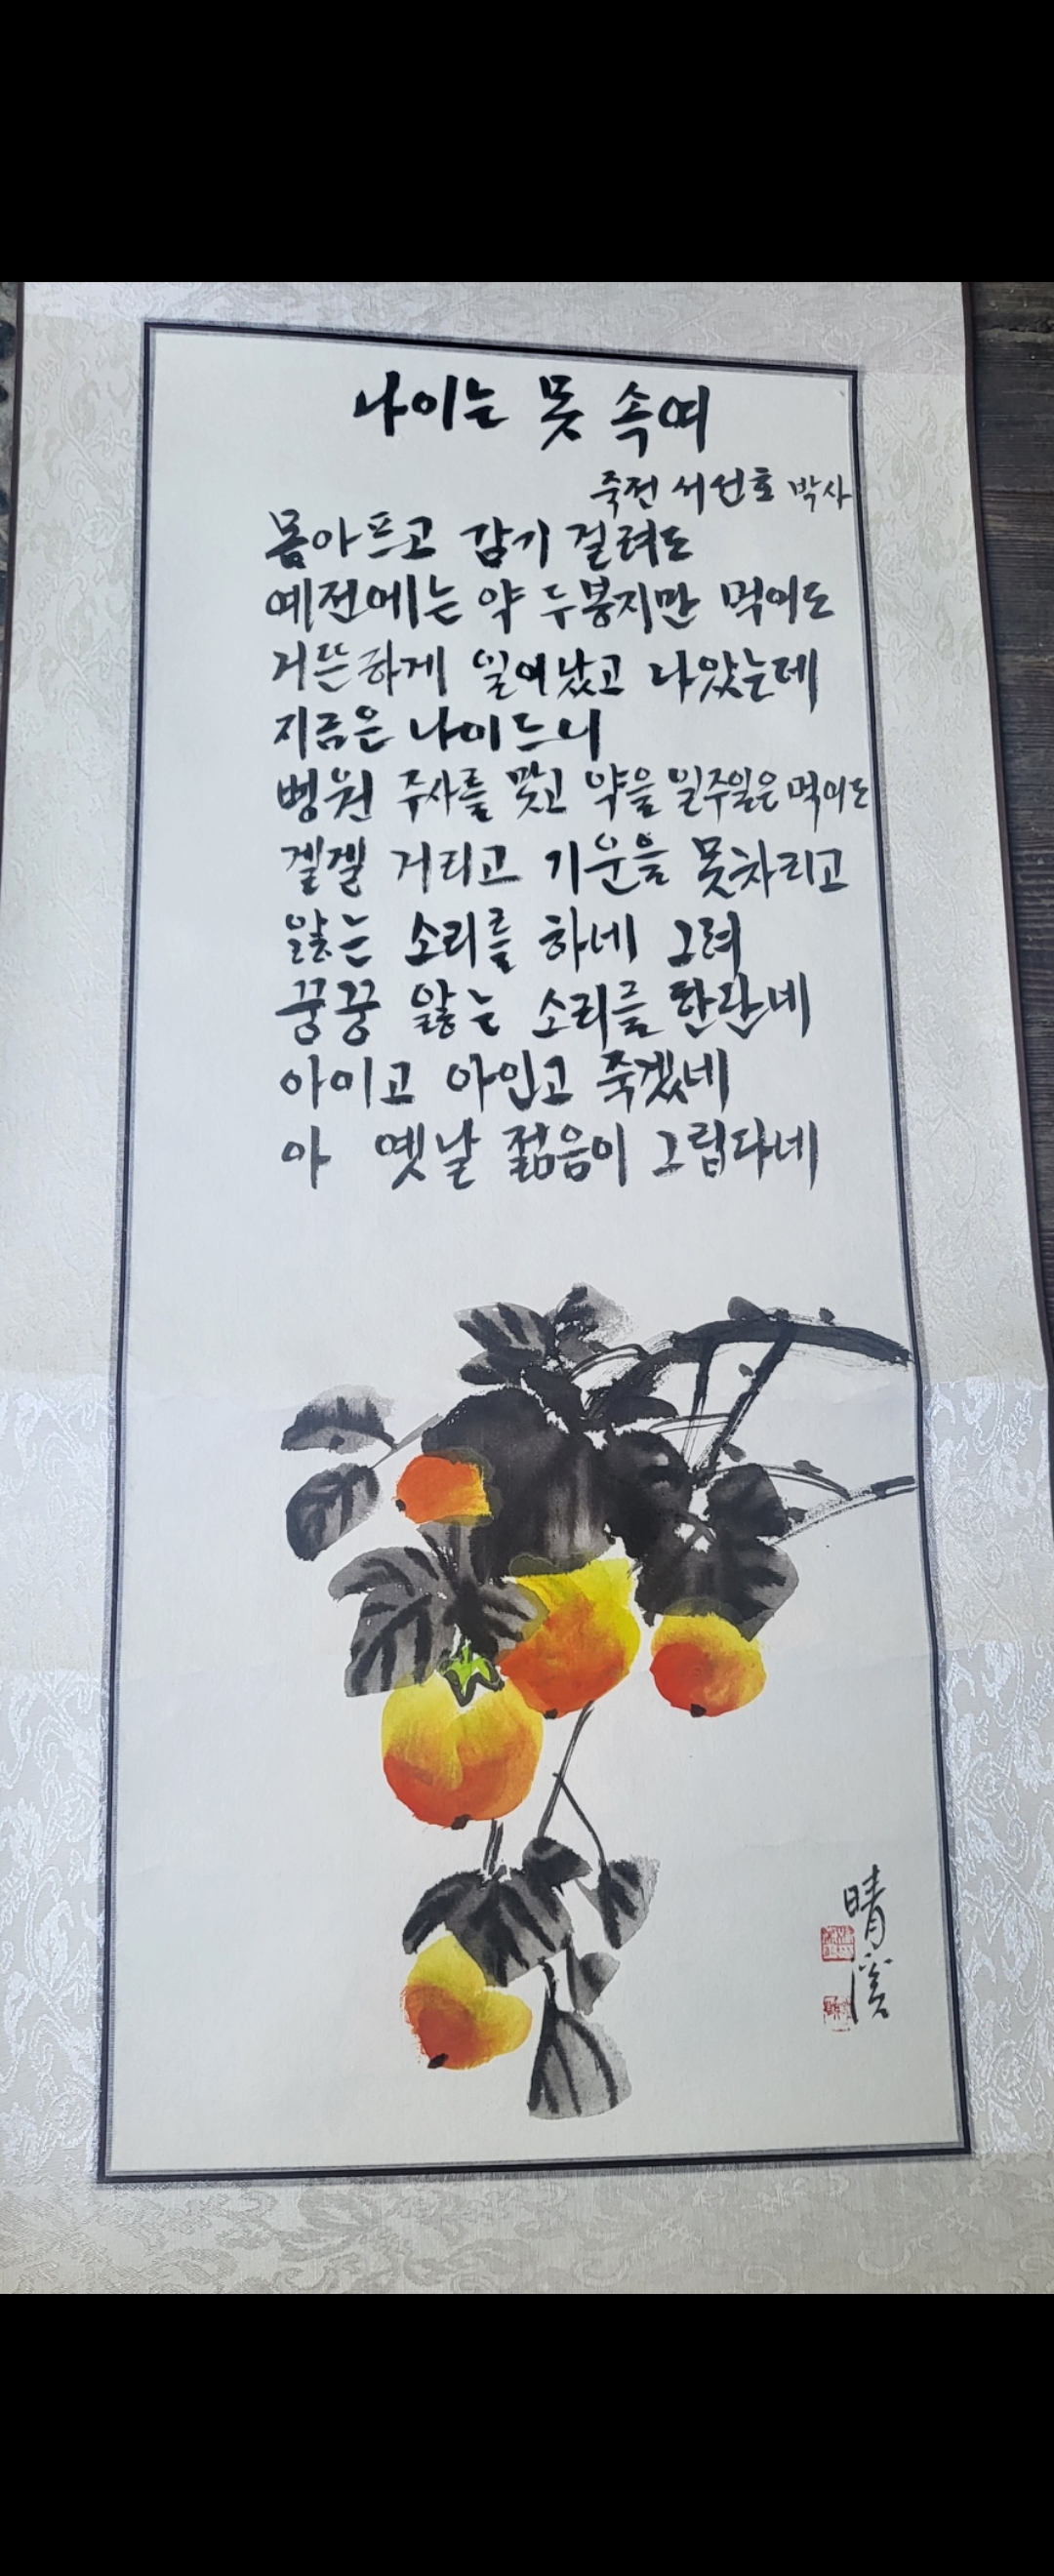 나이는 못 속여
죽전 서선호 박사
몸아프고 감기 걸려도
예전에는 약 두봉지만 먹어도
거뜬하게 일어났고 나았는데
지금은 나이드니
병원 주사를 맞고 약을 일주일은 먹어도
겔겔 거리고 기운을 못차리고
앓는 소리를 하네 그려
꿍꿍 앓는 소리를 한단네
아이고 아인고 죽겠네
아 옛날 젊음이 그립다네
晴溪